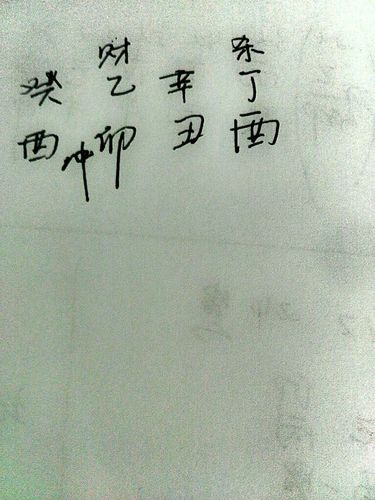 财 杀
癸 乙 辛 丁
酉 冲 卯 丑 酉